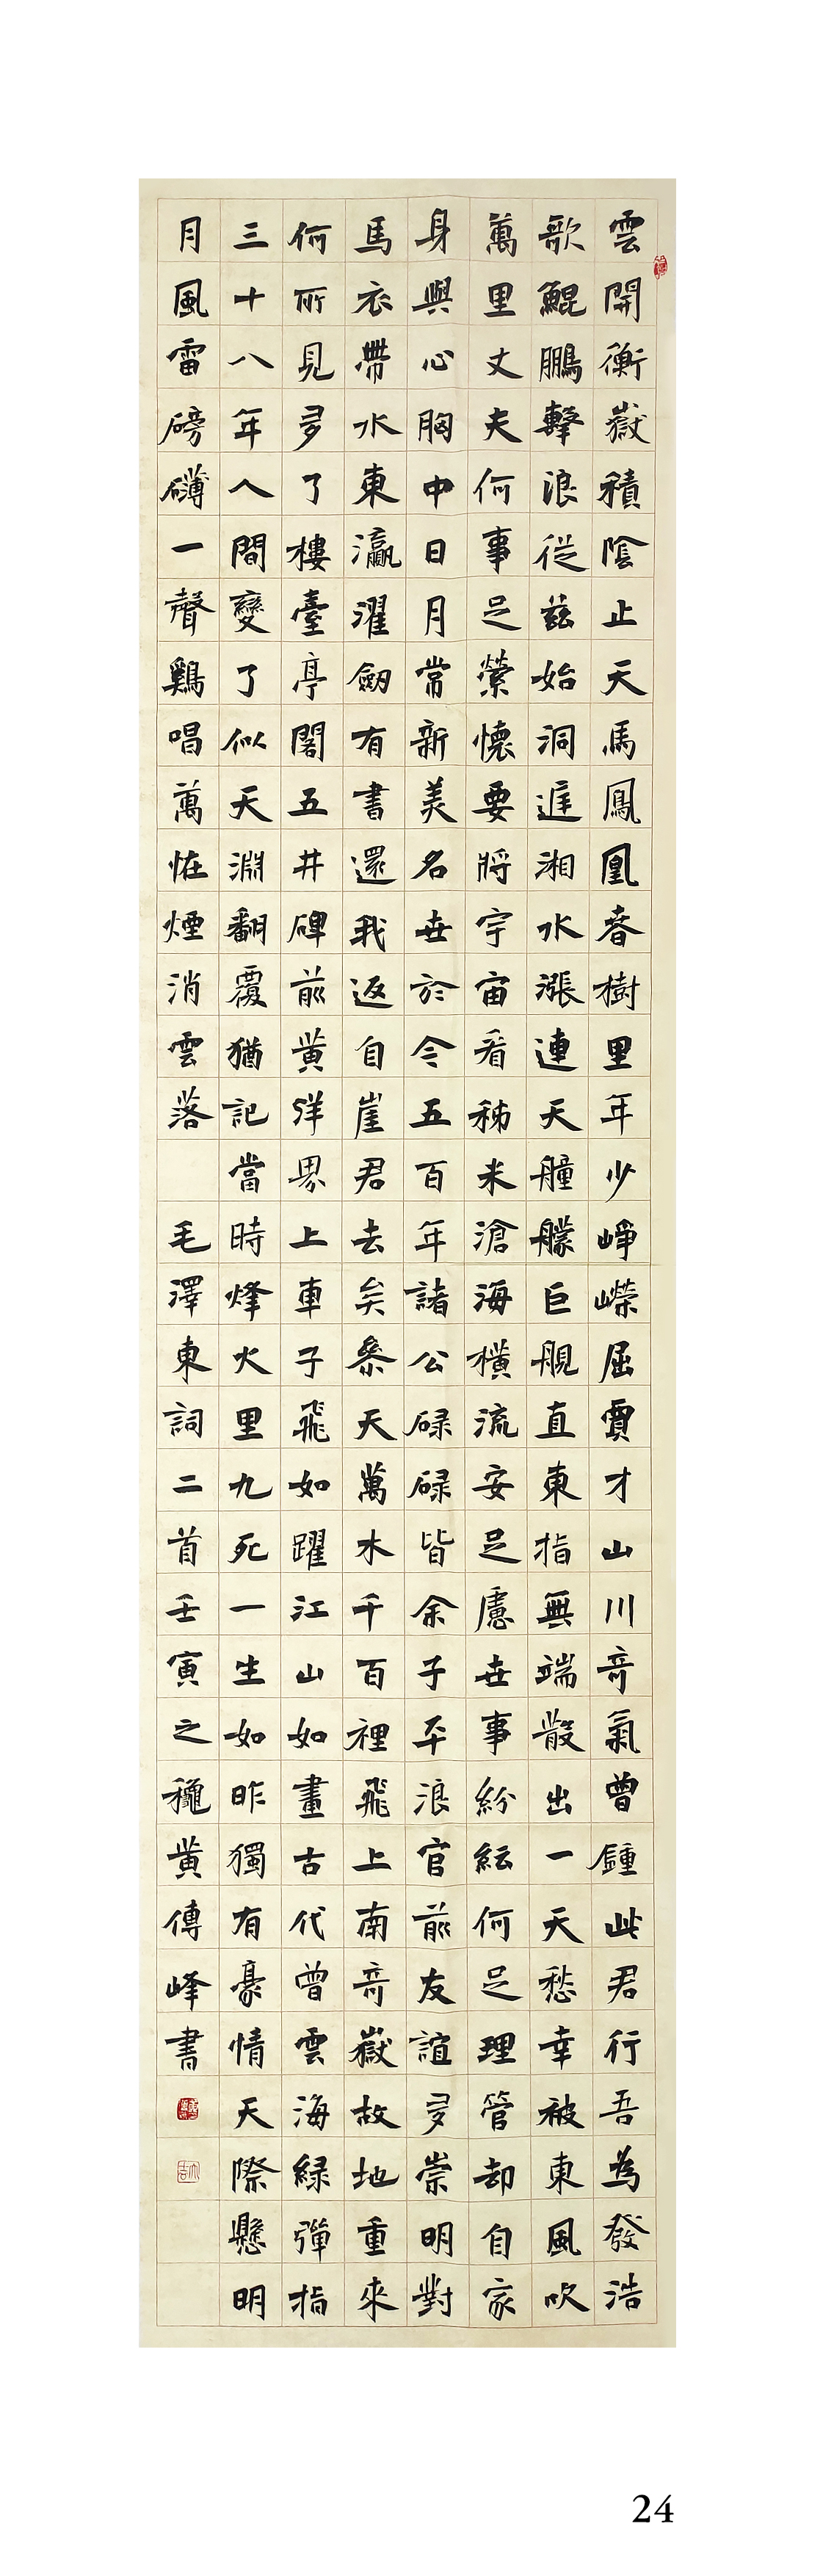 雲開衡嶽積陰止天馬鳳凰春樹里年少崢嶸屈賈才山川奇氣曾鍾此君行吾為發浩
歌鯤鵬擊浪從茲始洞庭湘水漲連天艟艨巨艦直東指無端散出一天愁幸被東風吹
萬里丈夫何事足縈懷要將宇宙看稊米滄海橫流安足慮世事紛紜何足理管却自家
身與心胸中日月常新美名世於今五百年諸公碌碌皆余子平浪宮前友誼多崇明對
馬衣帶水東瀛濯劍有書還我返自崖君去矣參天萬木千百裡飛上南奇嶽故地重來
何所見多了樓臺亭閣五井碑前黃洋界上車子飛如躍江山如畫古代曾雲海綠彈指
三十八年人間變了似天淵翻覆猶記當時烽火里九死一生如昨獨有豪情天際懸明
月風雷磅礴一聲鷄唱萬怪煙消雲落 毛澤東詞二首壬寅之穐黃傳峰書
24